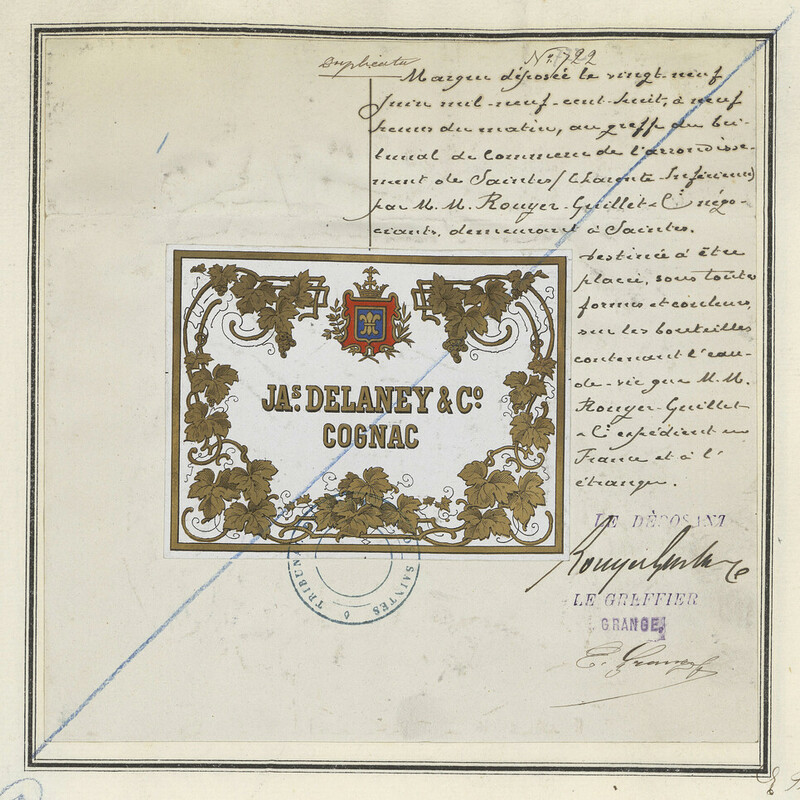 Duplicata
N° 722
Marque déposée le vingt-neuf
Juin mil-neuf-cent-huit, à neuf
heures du matin, au greffe du tri-
bunal de Commerce de l'arrondisse-
ment de Saintes (Charente-Inférieure)
par M.M. Rouyer-Guillet & Cie négo-
ciants, demeurant à Saintes.
Destinée à être
placée, sous toutes
formes et couleurs,
sur les bouteilles
contenant l'eau-
de-vie que M.M.
Rouyer-Guillet
& Cie expédient en
France et à l'
étranger.
JAS. DELANEY & Co
COGNAC
LE DÉPOSANT
Rouyer Guillet & Co
LE GREFFIER
GRANGE
E. Grange
TRIBUNAL
SAINTES